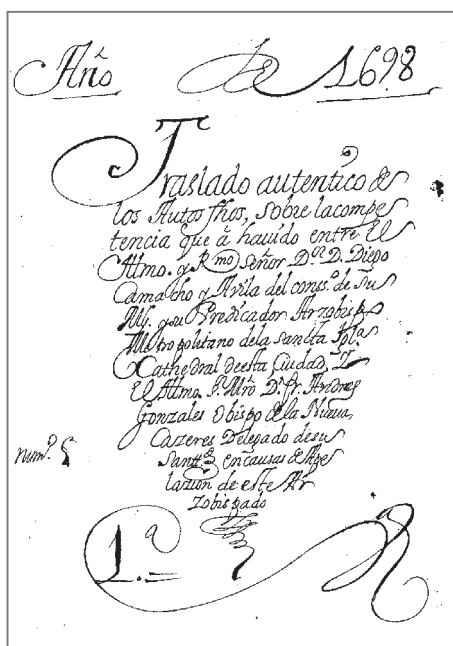 Año de 1698
Traslado autentico de
los Autos fhos, sobre la compe
tencia que â havido entre El
Illmo. y Rmo Señor Dor D. Diego
Camacho y Avila del conso. de Su
Mg. y su Predicador Arzobispo
Metropolitano dela sancta Igla
Cathedral deesta Ciudad, Y
El Illmo. Sr. Mro Dn fr. Andres
Gonzales Obispo de la Nueva
Cazeres Delegado desu
Santtd en causas de Ape
lazion de este Ar
zobispado
numo. 5
1.a